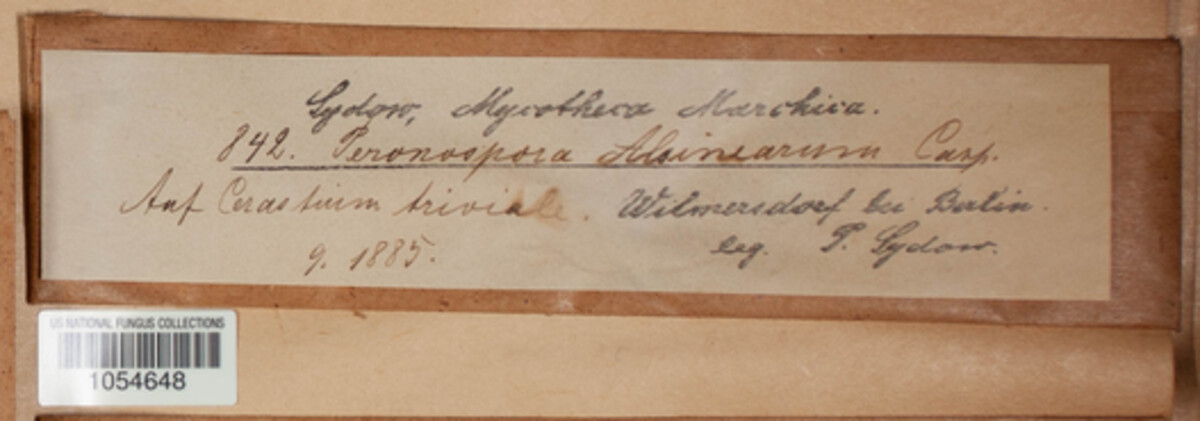 Sydow, Mycotheca Marchica.
842. Peronospora Alsinearum Casp.
Auf Cerastium triviale. Wilmersdorf bei Berlin.
9. 1885. leg. P. Sydow.
US NATIONAL FUNGUS COLLECTIONS
1054648